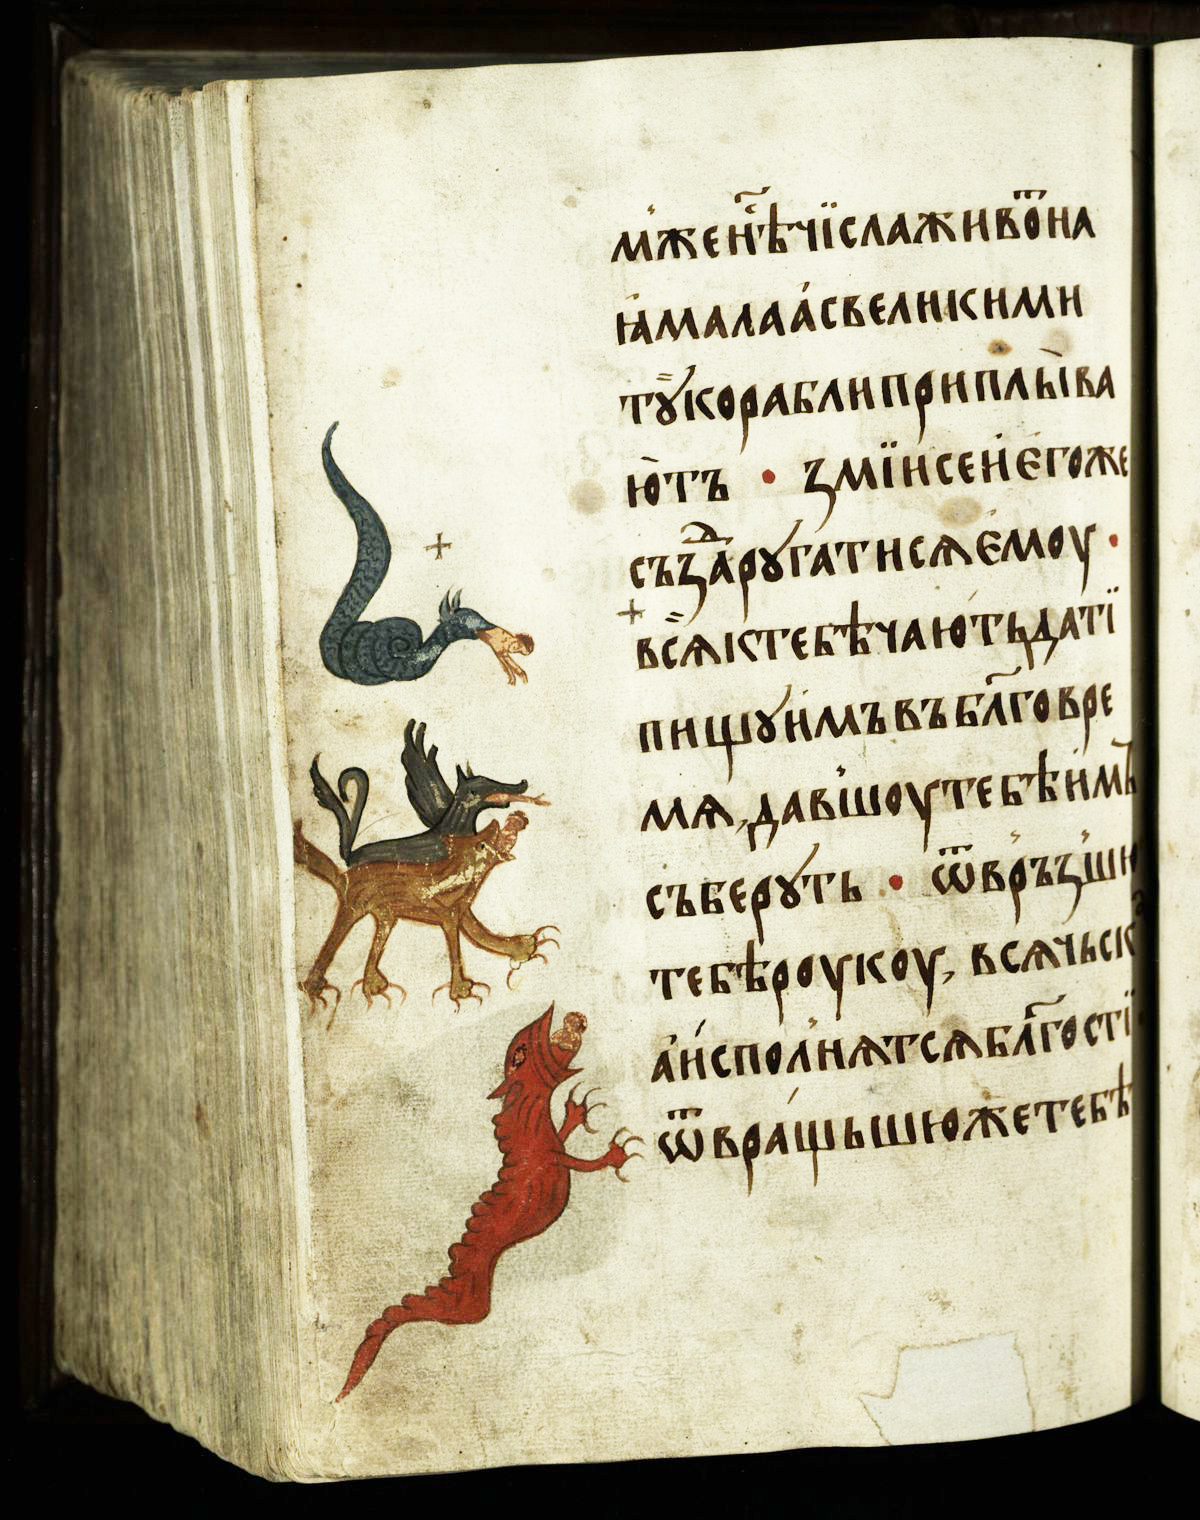 м҆жен҆ꙵѣчїислаживѡ҆͠на
ꙗ҆малаа҆свеликими
тꙋ҆кораблиприплы̀ва
ю҆тъ • змїисеи҆є҆гоже
съзⷣаругатисѧє҆моу •
всѧ̑ктебѣчаю҆тьдатї
пищꙋи҆мъвъбл҃говре
мѧ, давшоутебѣи҆мъ
съберꙋть • ѿврьзши
тебѣроукоу, всѧчьск
аи҆сполнѧтсѧбл҃гостї
ѿвра́щьшюжетебѣ